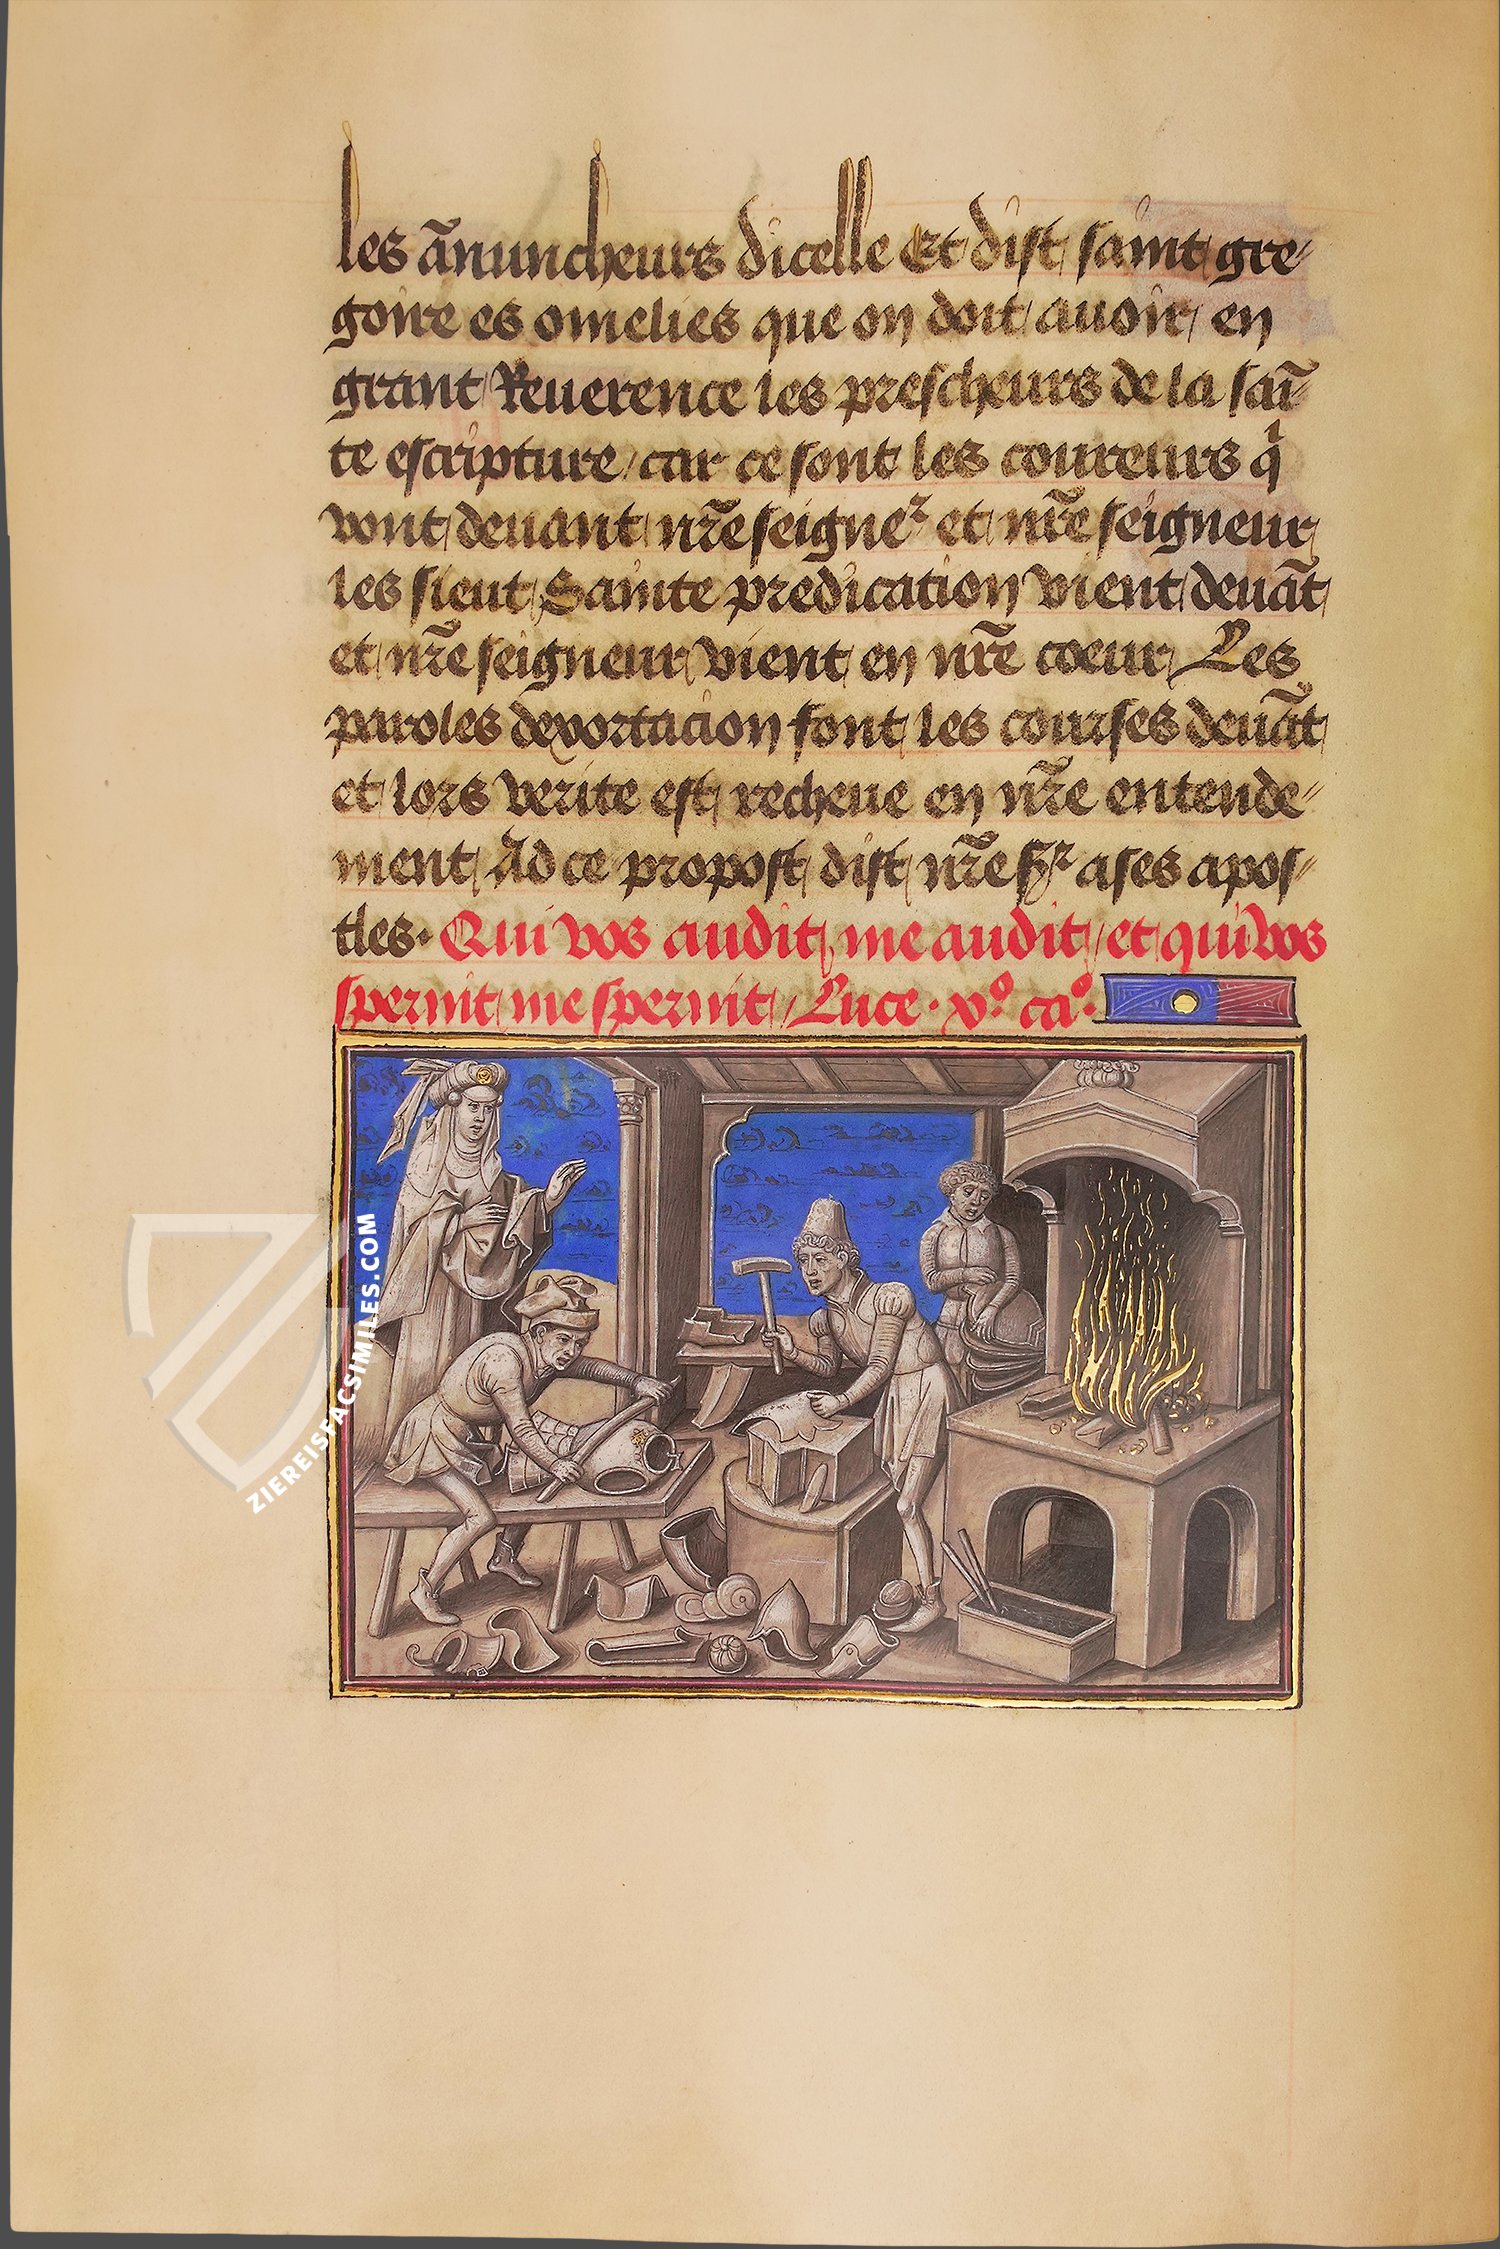 les ãnuncheurs dicelle Et dist saint gre-
goire es omelies que on doit auoir en
grant Reuerence les prescheurs de la sai̅-
te escripture / car ce sont les coureurs qͥ
vont deuant nr̃e seigneᷣ et nr̃e seigneur
les sieut Sainte predication vient deuãt
et nr̃e seigneur vient en nr̃e coeur Les
paroles dexortacion font les courses deuãt
et lors verite est recheue en nr̃e entende-
ment Ad ce propost dist nr̃e sᷣ a ses apos-
tles. Qui vos audit me audit / et qui vos
spernit me spernit / Luce . xº. caº.
ZIEREISFACSIMILES.COM